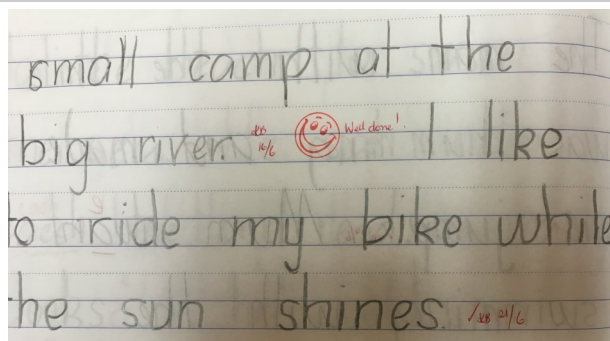 small camp at the
big river. 16/6 Well done! I like
to ride my bike while
the sun shines. 21/6